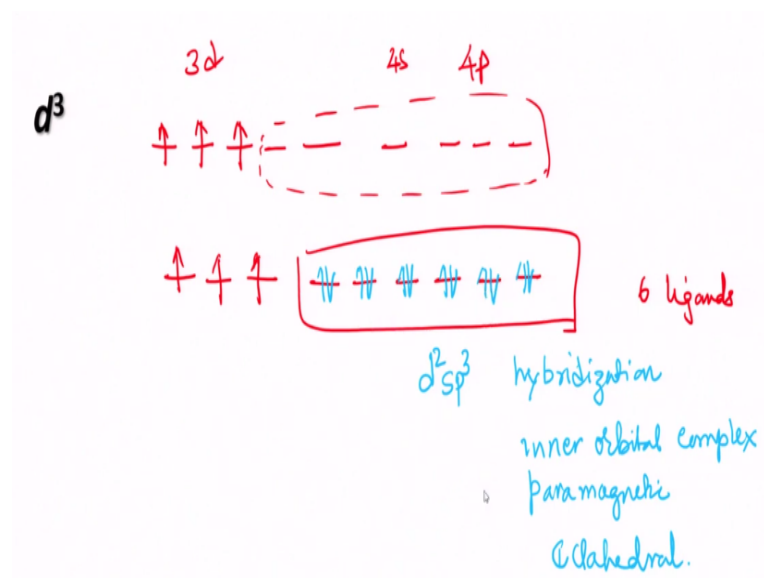 3d 4s 4p
d³
6 ligands
d²sp³ hybridization
inner orbital complex
paramagnetic
Octahedral.